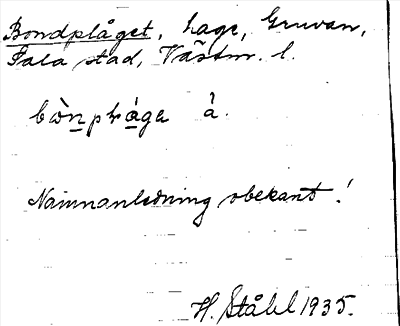 Bondplåget, hage, Gruvan,
Sala stad, Västm. l.
bò̀n̲plá̲ga å̀.
Namnanledning obekant!
H. Ståhl 1935.